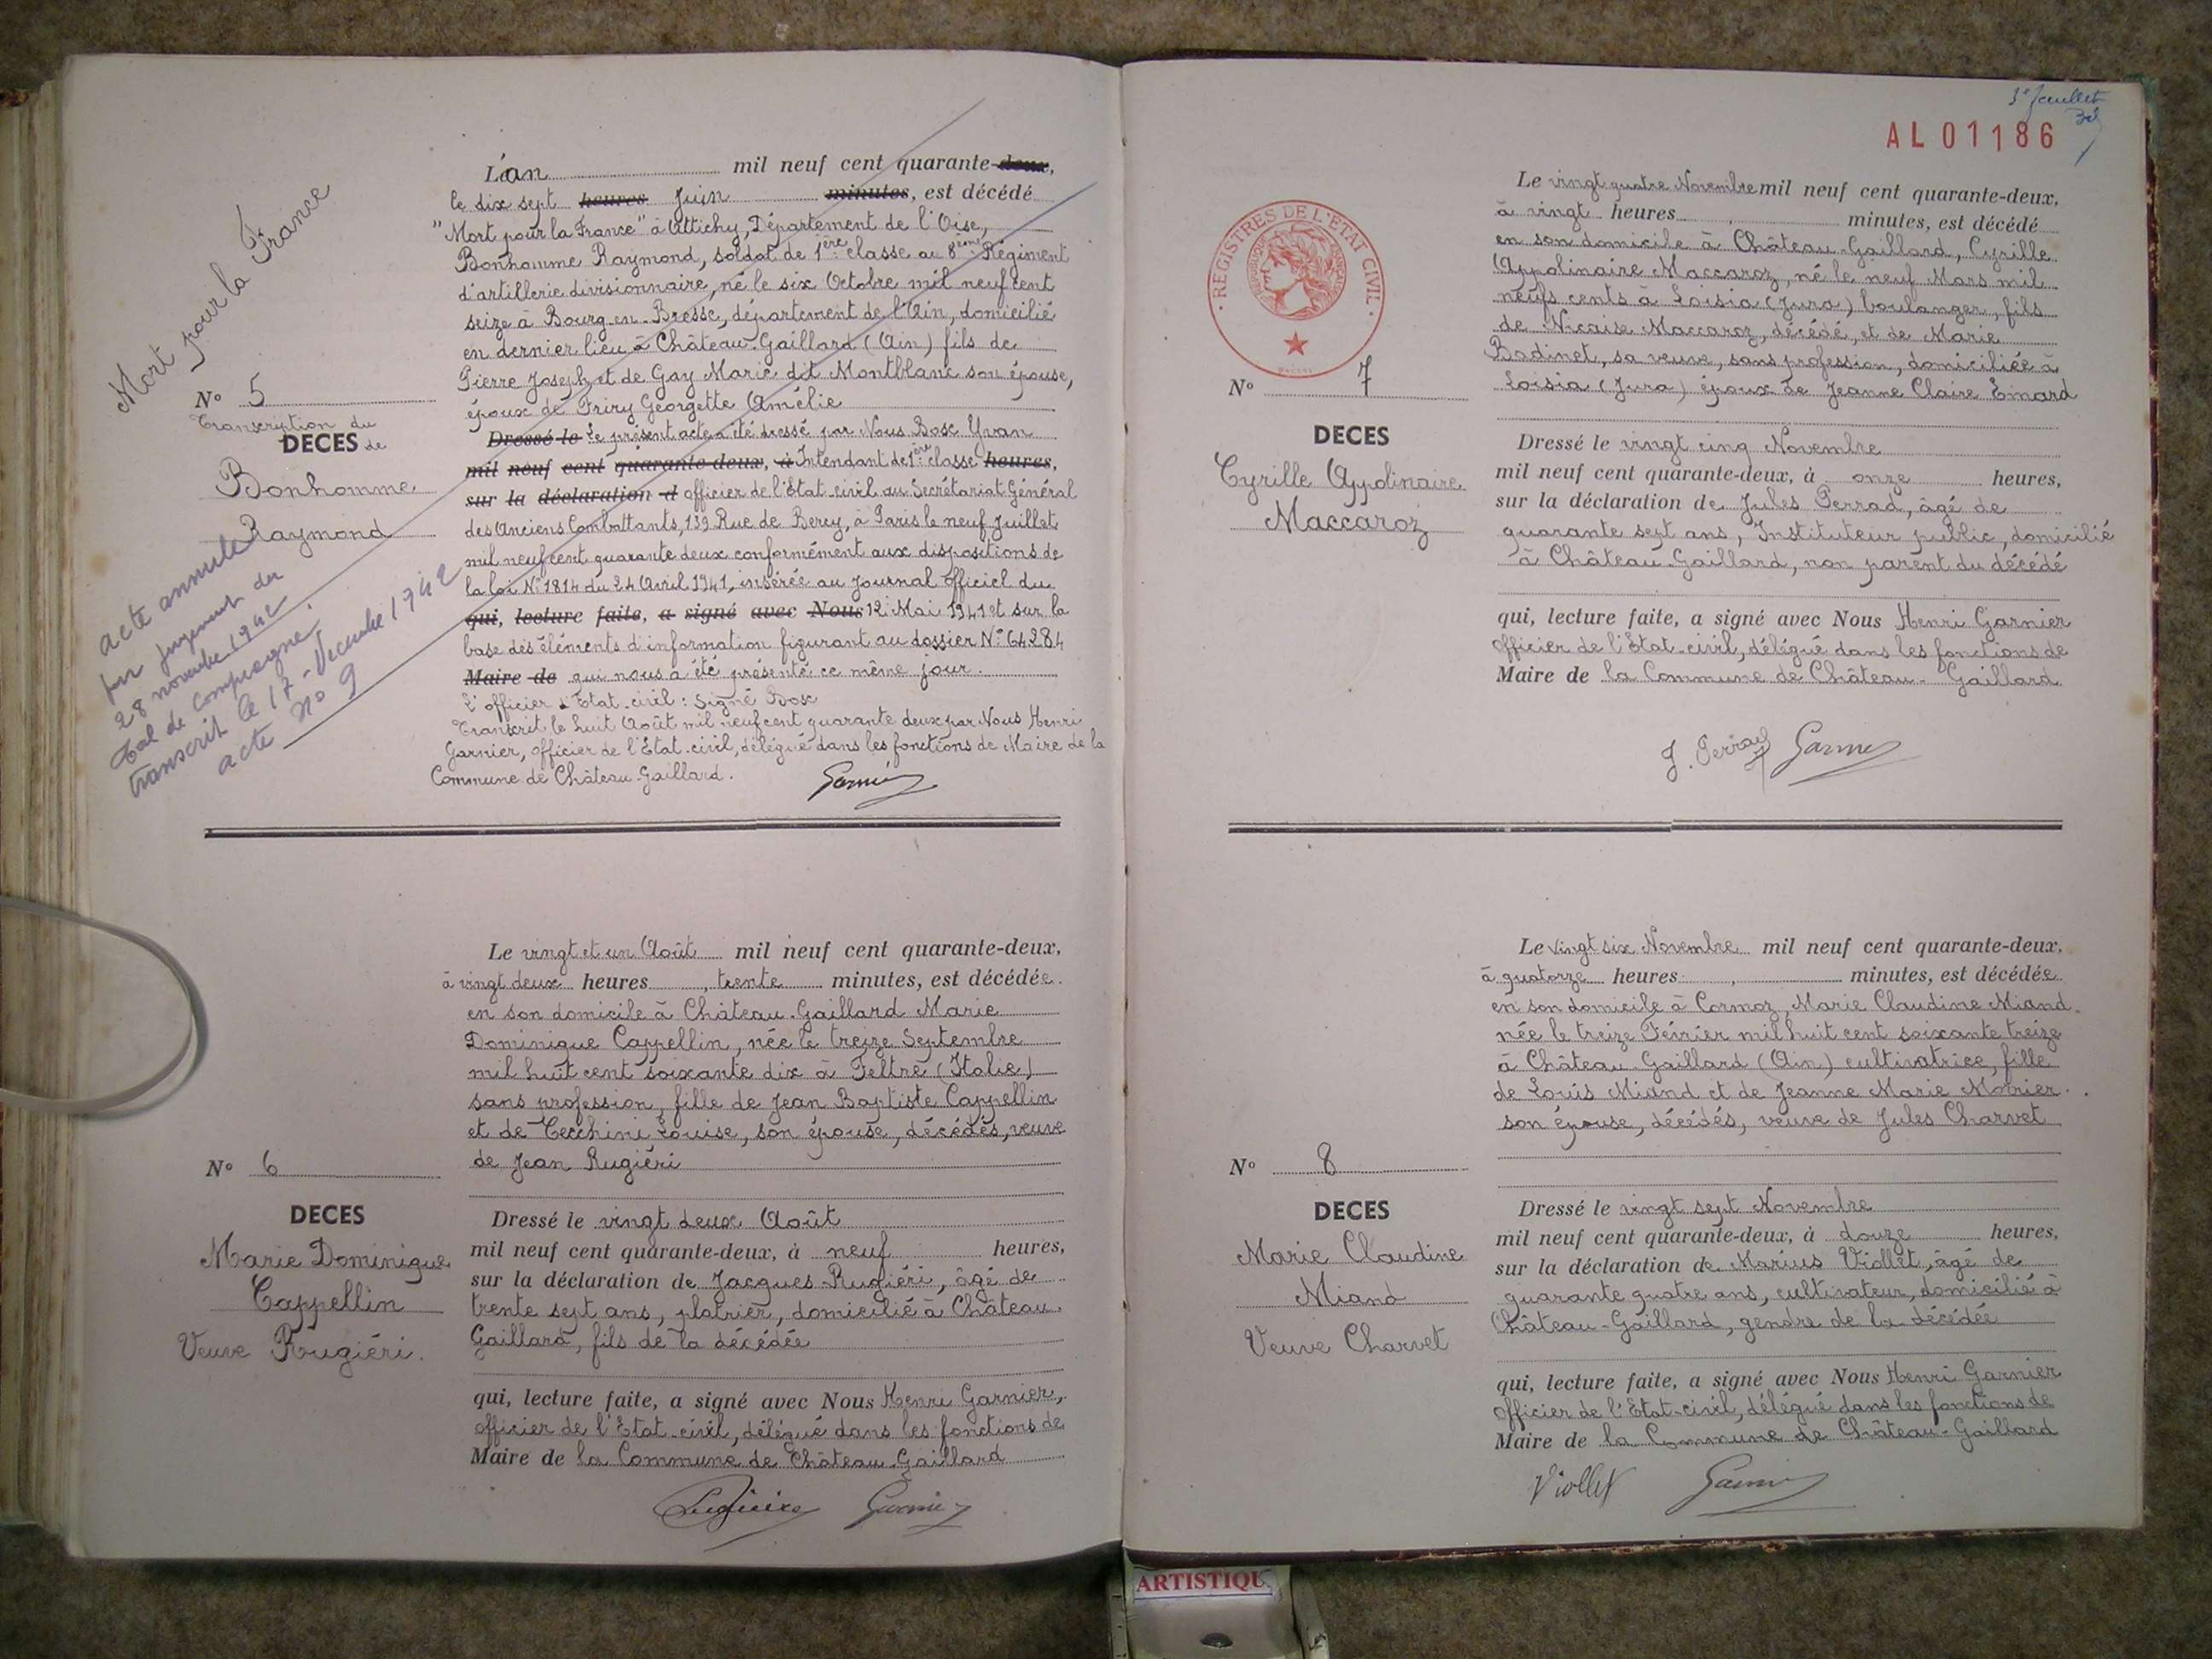 Mort pour la France
N° 5
Transcription du
DECES de
Bonhomme
Raymond
acte annulé
par jugement du
28 novembre 1942
Tal de Compiegne.
transcrit le 17 Décembre 1942
acte no 9
L'an mil neuf cent quarante-deux,
le dix sept heures Juin minutes, est décédé
"Mort pour la France" à Attichy, Département de l'Oise,
Bonhomme Raymond, soldat de 1ère classe au 8ème Régiment
d'artillerie divisionnaire, né le six Octobre mil neuf cent
seize à Bourg-en-Bresse, département de l'Ain, domicilié
en dernier lieu à Château-Gaillard (Ain) fils de
Pierre Joseph et de Gay Marie dit Montblanc son épouse,
époux de Friry Georgette Amélie
Dressé le Le présent acte a été dressé par Nous Bosc Yvan
mil neuf cent quarante-deux, à Intendant de 1ère classe heures,
sur la déclaration d officier de l'Etat-civil au Secrétariat Général
des Anciens Combattants, 139 Rue de Bercy, à Paris le neuf Juillet
mil neuf cent quarante deux conformément aux dispositions de
la loi N° 1814 du 24 Avril 1941, insérée au Journal Officiel du
qui, lecture faite, a signé avec Nous 12 Mai 1941 et sur la
base des éléments d'information figurant au dossier N° 64284
Maire de qui nous a été présenté ce même jour.
L'officier d'Etat-civil : Signé Bosc
Transcrit le huit Août mil neuf cent quarante deux par Nous Henri
Garnier, officier de l'Etat-civil, délégué dans les fonctions de Maire de la
Commune de Château-Gaillard.
Garnier
N° 6
DECES
Marie Dominique
Cappellin
Veuve Rugiéri.
Le vingt et un Août mil neuf cent quarante-deux,
à vingt deux heures, trente minutes, est décédée
en son domicile à Château-Gaillard Marie
Dominique Cappellin, née le treize Septembre
mil huit cent soixante dix à Feltre (Italie)
sans profession, fille de Jean Baptiste Cappellin
et de Cecchini Louise, son épouse, décédés, veuve
de Jean Rugiéri
Dressé le vingt deux Août
mil neuf cent quarante-deux, à neuf heures,
sur la déclaration de Jacques Rugiéri, âgé de
trente sept ans, platrier, domicilié à Château-
Gaillard, fils de la décédée
qui, lecture faite, a signé avec Nous Henri Garnier,
officier de l'Etat-civil, délégué dans les fonctions de
Maire de la Commune de Château-Gaillard
Garnier
AL 01186
REGISTRES DE L'ETAT CIVIL
N° 7
DECES
Cyrille Appolinaire
Maccaroz
Le vingt quatre Novembre mil neuf cent quarante-deux,
à vingt heures minutes, est décédé
en son domicile à Château-Gaillard, Cyrille
Appolinaire Maccaroz, né le neuf Mars mil
neufs cents à Loisia (Jura) boulanger, fils
de Nicaise Maccaroz, décédé, et de Marie
Badinet, sa veuve, sans profession, domiciliée à
Loisia (Jura) époux de Jeanne Claire Emard
Dressé le vingt cinq Novembre
mil neuf cent quarante-deux, à onze heures,
sur la déclaration de Jules Perrad, âgé de
quarante sept ans, Instituteur public, domicilié
à Château-Gaillard, non parent du décédé
qui, lecture faite, a signé avec Nous Henri Garnier
Officier de l'Etat-civil, délégué dans les fonctions de
Maire de la Commune de Château-Gaillard
J. Perrad Garnier
N° 8
DECES
Marie Claudine
Miand
Veuve Charvet
Le vingt six Novembre mil neuf cent quarante-deux,
à quatorze heures, minutes, est décédée
en son domicile à Cormoz, Marie Claudine Miand
née le treize Février mil huit cent soixante treize
à Château-Gaillard (Ain) cultivatrice, fille
de Louis Miand et de Jeanne Marie Monier
son épouse, décédés, veuve de Jules Charvet
Dressé le vingt sept Novembre
mil neuf cent quarante-deux, à douze heures,
sur la déclaration de Marius Viollet, âgé de
quarante quatre ans, cultivateur, domicilié à
Château-Gaillard, gendre de la décédée
qui, lecture faite, a signé avec Nous Henri Garnier
Officier de l'Etat-civil, délégué dans les fonctions de
Maire de la Commune de Château-Gaillard
Viollet Garnier
ARTISTIQU